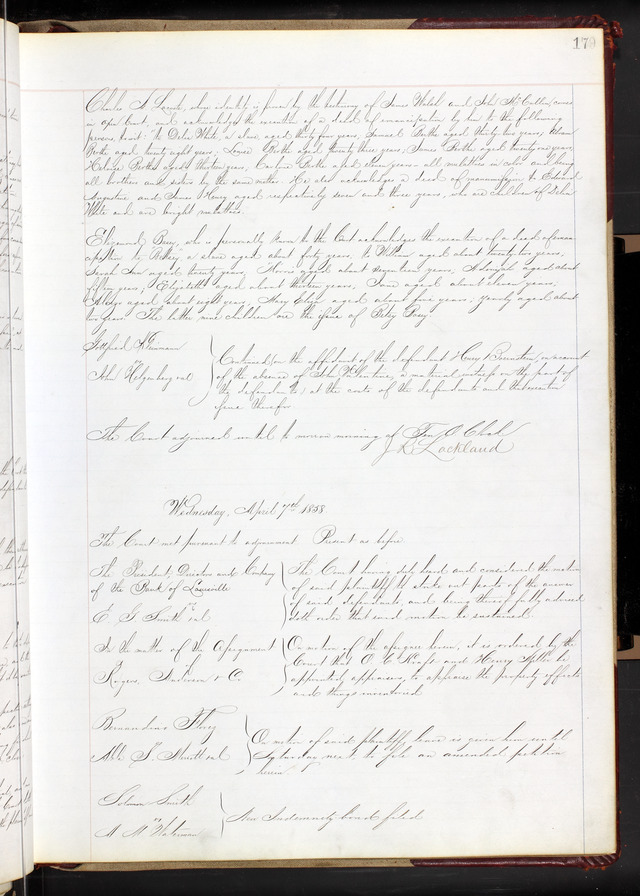 179
Charles A. whose identity is proven by the testimony of James Walsh and John Mc comes
in open Court, and acknowledges the execution of a deed of emancipation by him to the following
persons, to wit: to Delia White a slave, aged thirty four years; Samuel Berthe aged thirty two years;
Berthe aged twenty eight years; Louisa Berthe aged twenty three years; James Berthe aged twenty one years,
Berthe aged thirteen years; Caroline Berthe aged eleven years – all mulattoes in color and being
all brothers and sisters by the same mother. He also acknowledges a deed of manumission to Edward
Augustine and James Henry aged respectively seven and three years, who are children of Delia
White and are bright mulattoes.
who is personally known to the Court acknowledges the execution of a deed of eman-
cipation to a slave aged about forty years, to William aged about twenty two years,
Sarah Ann aged twenty years, Morris aged about seventeen years, aged about
fifteen years, Elizabeth aged about thirteen years, Jane aged about eleven years,
aged about eight years, Mary Eliza aged about five years; aged about
two years. The latter nine children are the issue of
Gottfried
vs
John et al
Continued on the affidavit of the defendant Henry Bernstein, on account
of the absence of John Valentine, a material witness on the part of
the defendants, at the costs of the defendants and that execution
issue therefor
The Court adjourned until to morrow morning at Ten O Clock
J R Lackland
Wednesday, April 7th 1858
The Court met pursuant to adjournment Present as before
The President, Directors and Company
of the Bank of Louisville
vs
E. G. Smith et al
The Court having duly heard and considered the motion
of said plaintiff to strike out parts of the answer
of said defendants, and being thereof fully advised
doth order that said motion be sustained.
In the matter of the Assignment
of
Rogers, Anderson & Co.
On motion of the assignee herein, it is ordered by the
Court that O. C. and Henry be
appointed appraisers, to appraise the property effects
and things inventoried
Bernardine
vs
J. et al
On motion of said plaintiff leave is given him until
Saturday next, to file an amended petition
herein
Solomon Smith
vs
A. M. Waterman
New Indemnity bond filed